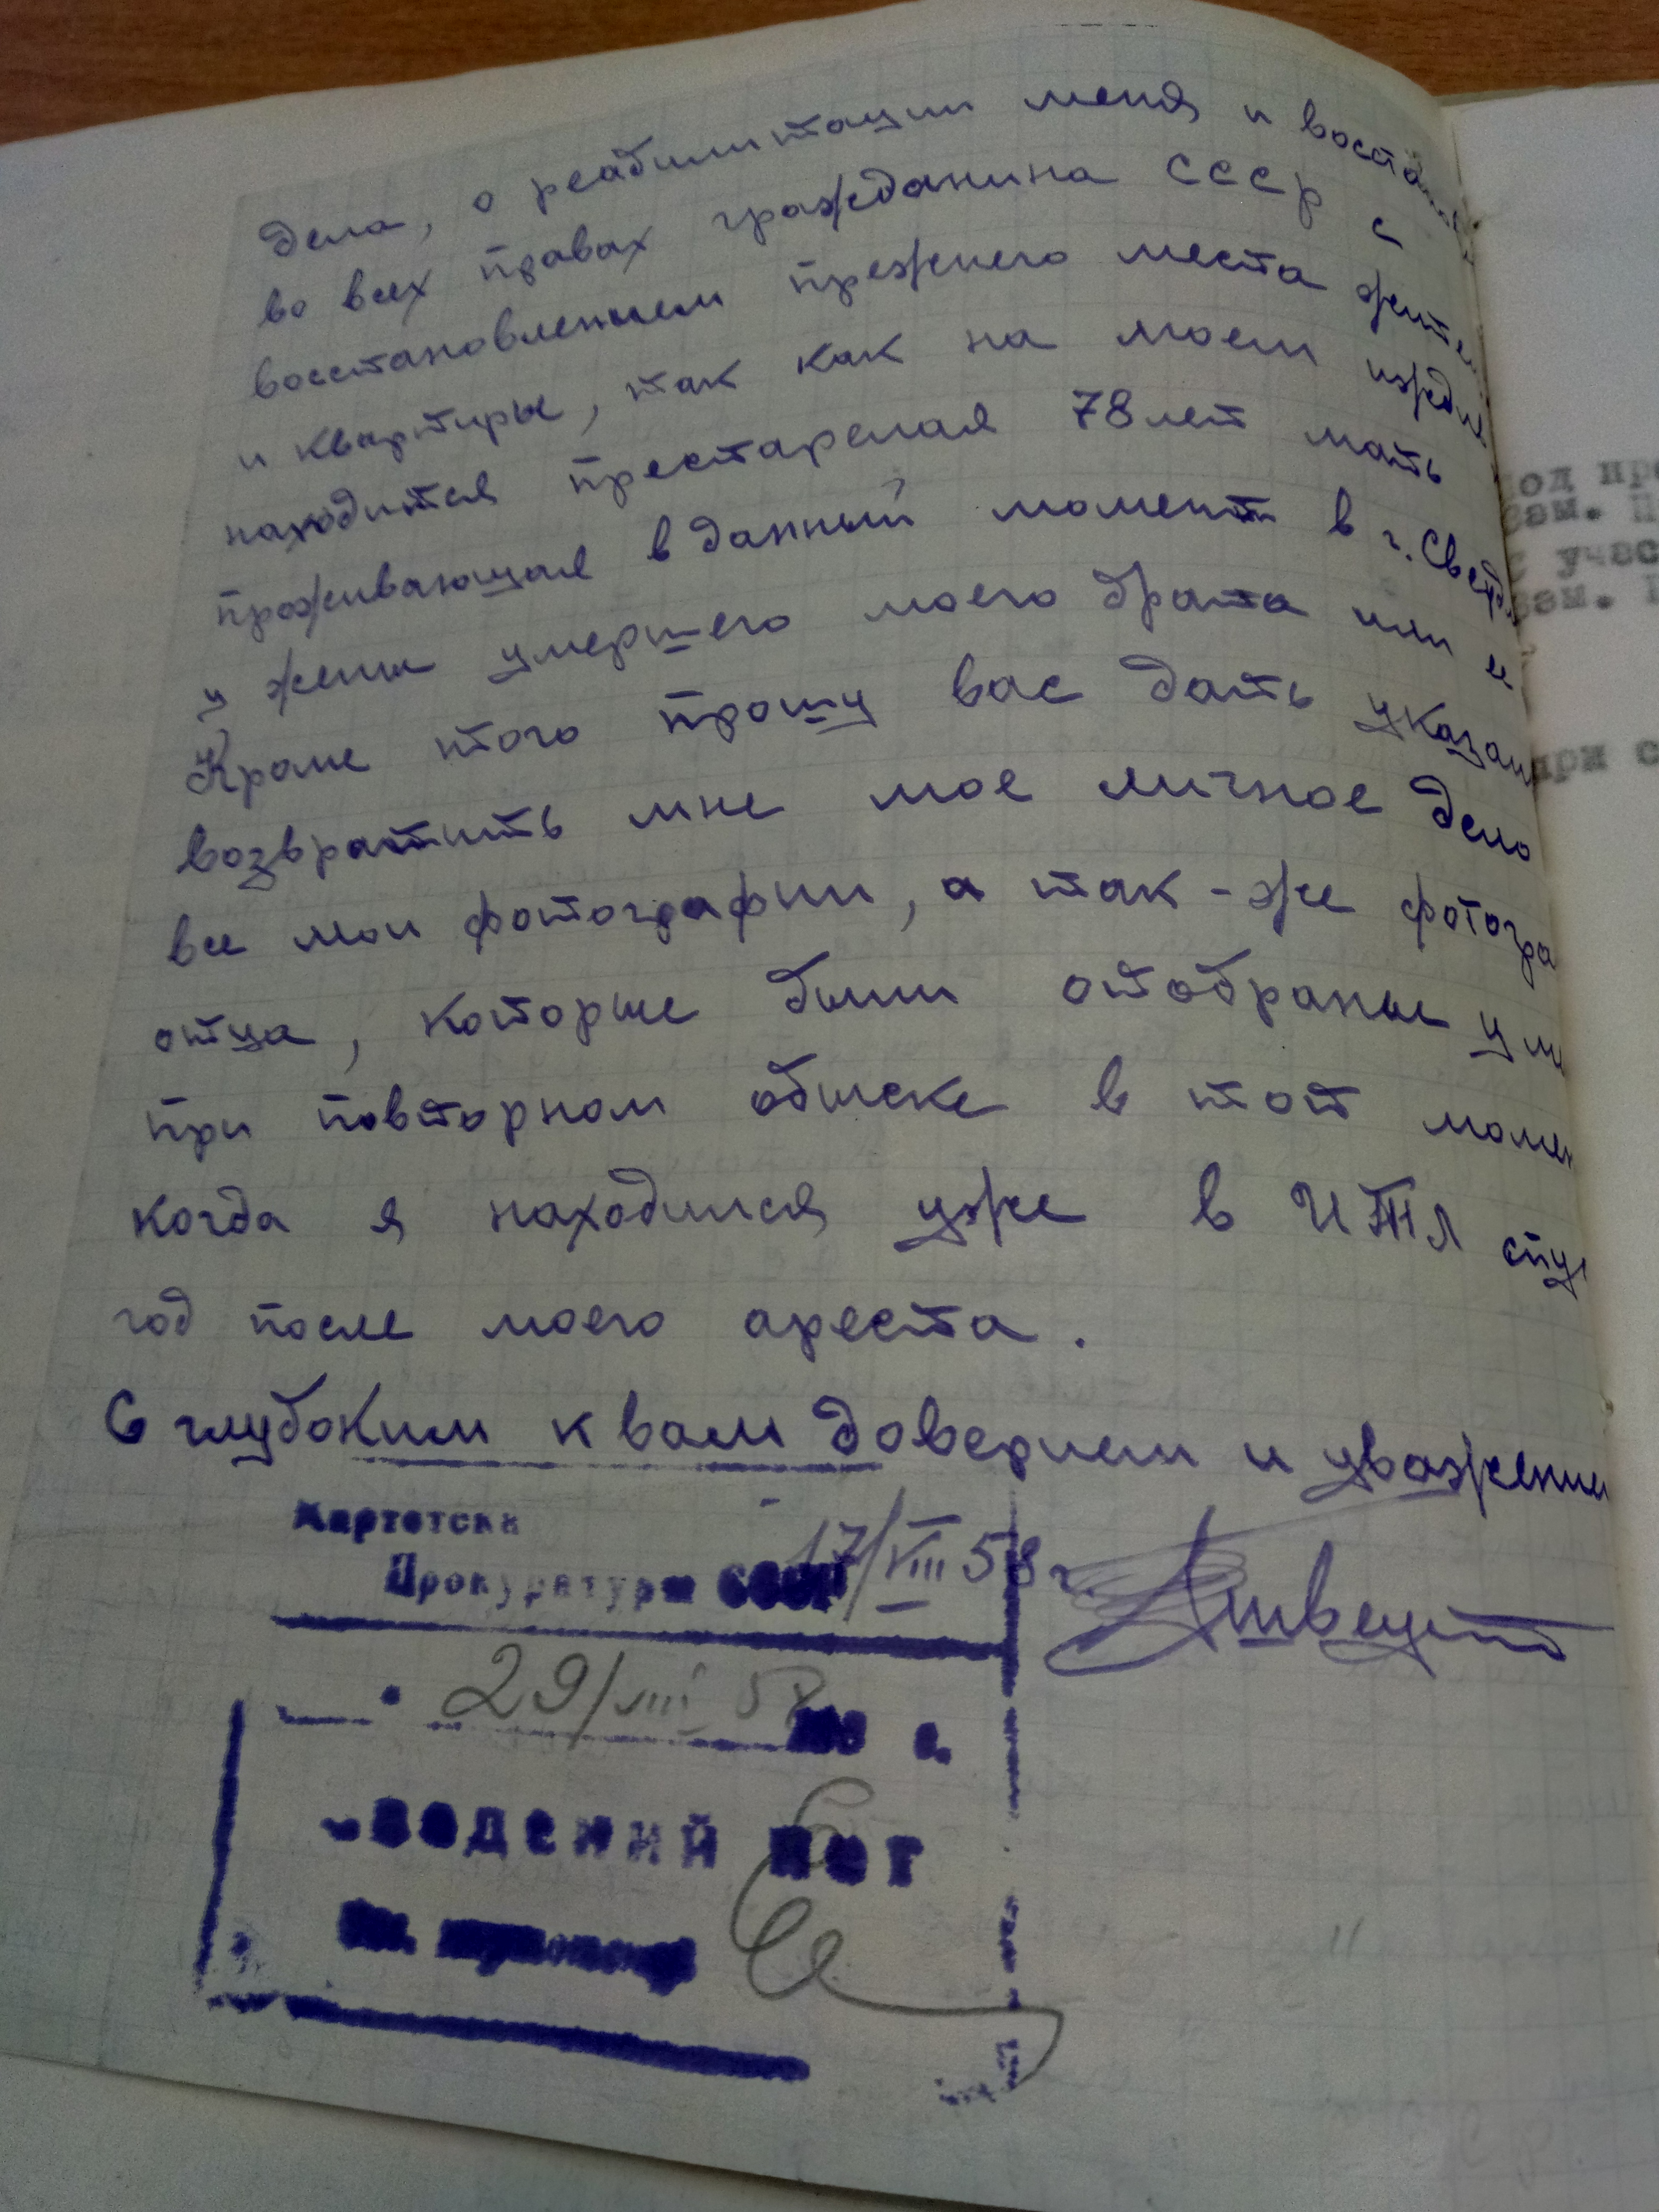 дела, о реабилитации меня и востанов
во всех правах гражданина СССР с
восстановлением прежнего места жител
и квартиры, так как на моем ижди
находится престарелая 78 лет мать
проживающая в данный момент в г. Свердл
у жены умершего моего брата или и
Кроме того прошу вас дать указан
возвратить мне мое личное дело
все мои фотографии, а так-же фотогра
отца, которые были отобраны у ме
при повторном обыске в тот момен
когда я находился уже в ИТЛ спу
год после моего ареста.
С глубоким к вам доверием и уважением
17/VIII 58 г.
Картотека
Прокуратуры СССР
29/VIII 58
Сведений нет
од пр
зам. П
с учас
зам.
при с